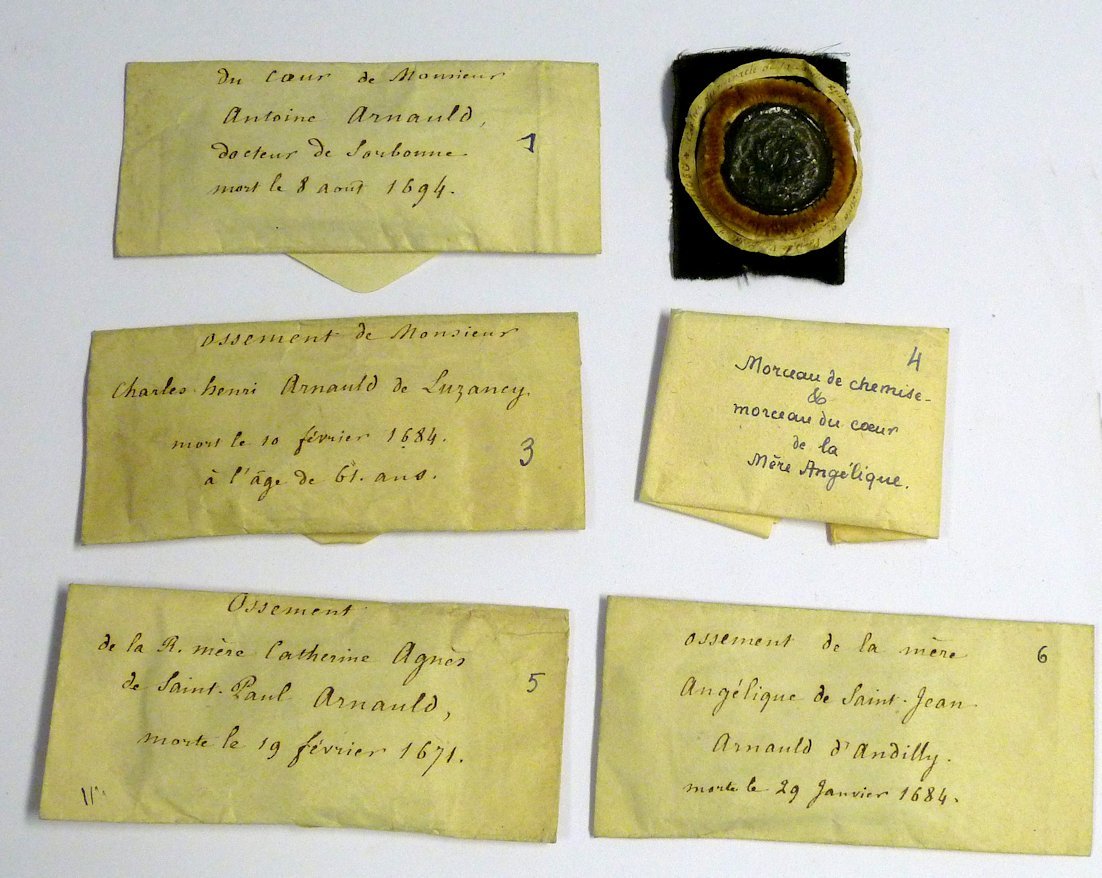 du Cœur de Monsieur
Antoine Arnauld,
docteur de Sorbonne
mort le 8 août 1694.
1
ossement de Monsieur
Charles-henri Arnauld de Luzancy.
mort le 10 février 1684.
à l'âge de 61. ans.
3
4
Morceau de chemise-
&
morceau du cœur
de la
Mère Angélique.
Ossement
de la R. mère Catherine Agnès
de Saint-Paul Arnauld,
morte le 19 février 1671.
5
ossement de la mère
Angélique de Saint-Jean
Arnauld d'Andilly.
morte le 29 Janvier 1684.
6